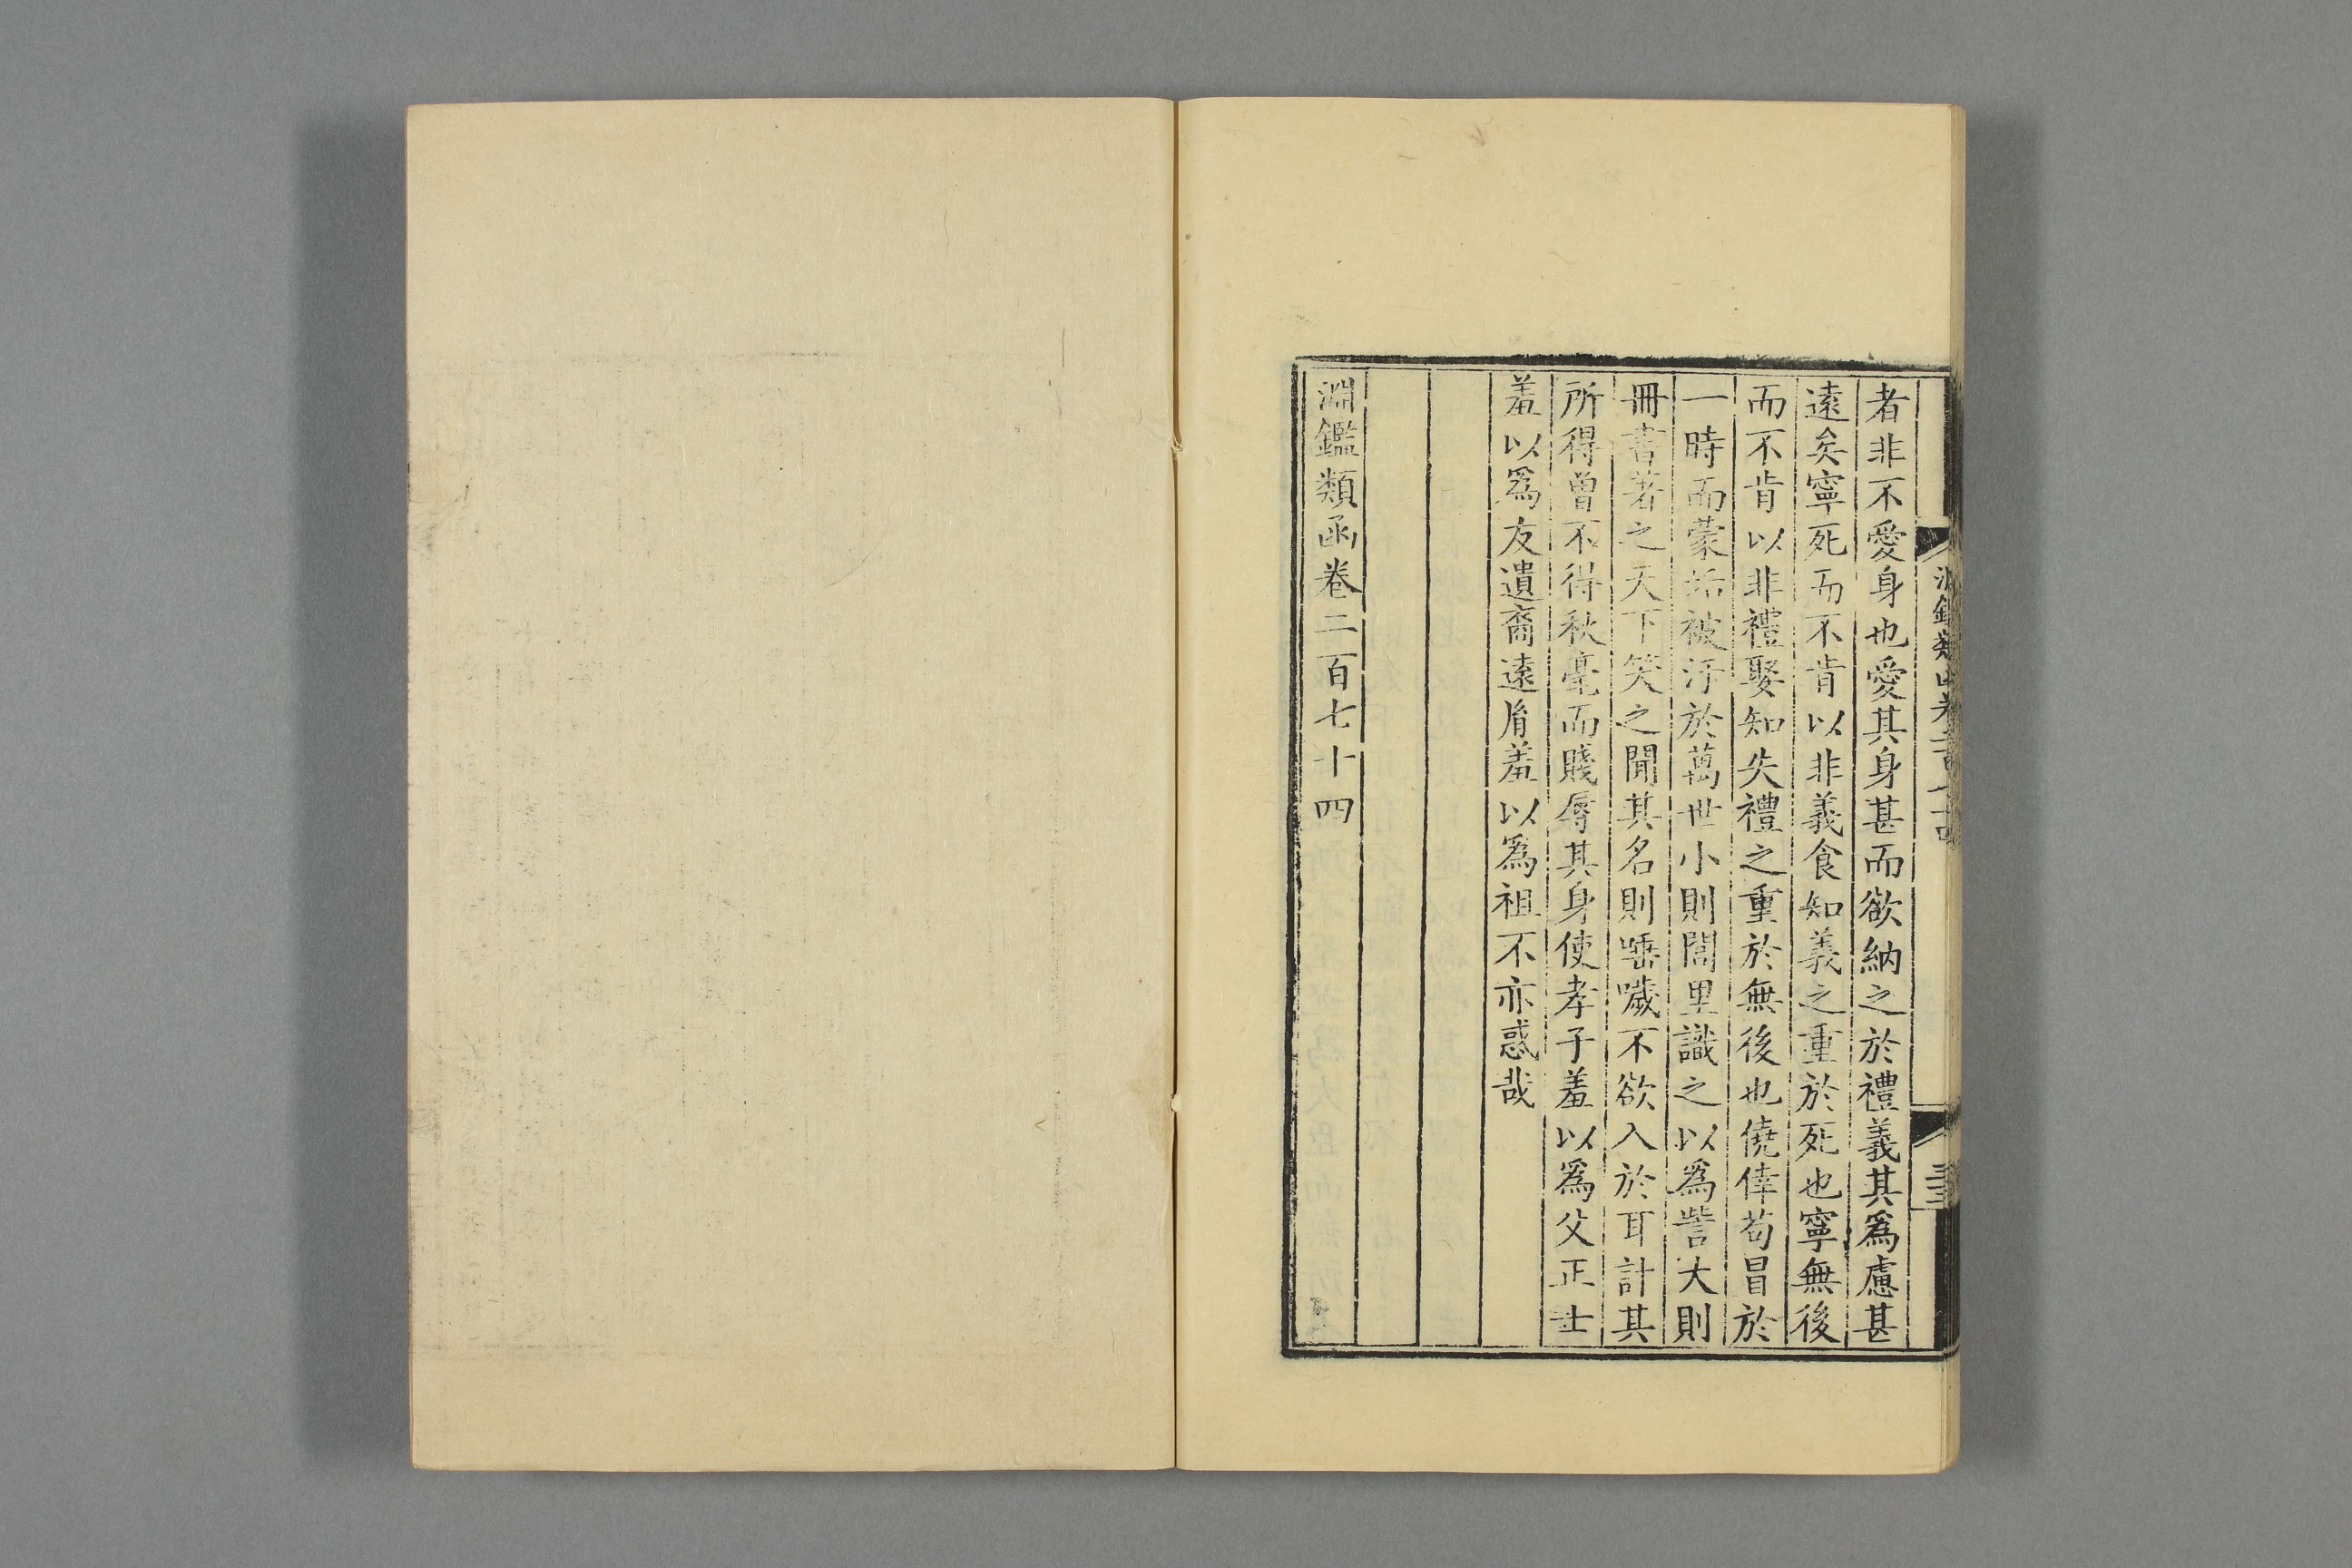 者非不愛身也愛其身甚而欲納之於禮義其爲慮甚
遠矣寧死而不肯以非義食知義之重於死也寧無後
而不肯以非禮娶知失禮之重於無後也僥倖苟冒於
一時而蒙垢被汙於萬世小則閭里識之以爲訾大則
冊書著之天下笑之聞其名則唾噦不欲入於耳計其
所得曾不得秋毫而賤辱其身使孝子羞以爲父正士
羞以爲友遺裔遠胄羞以爲祖不亦惑哉
淵鑑類函卷二百七十四